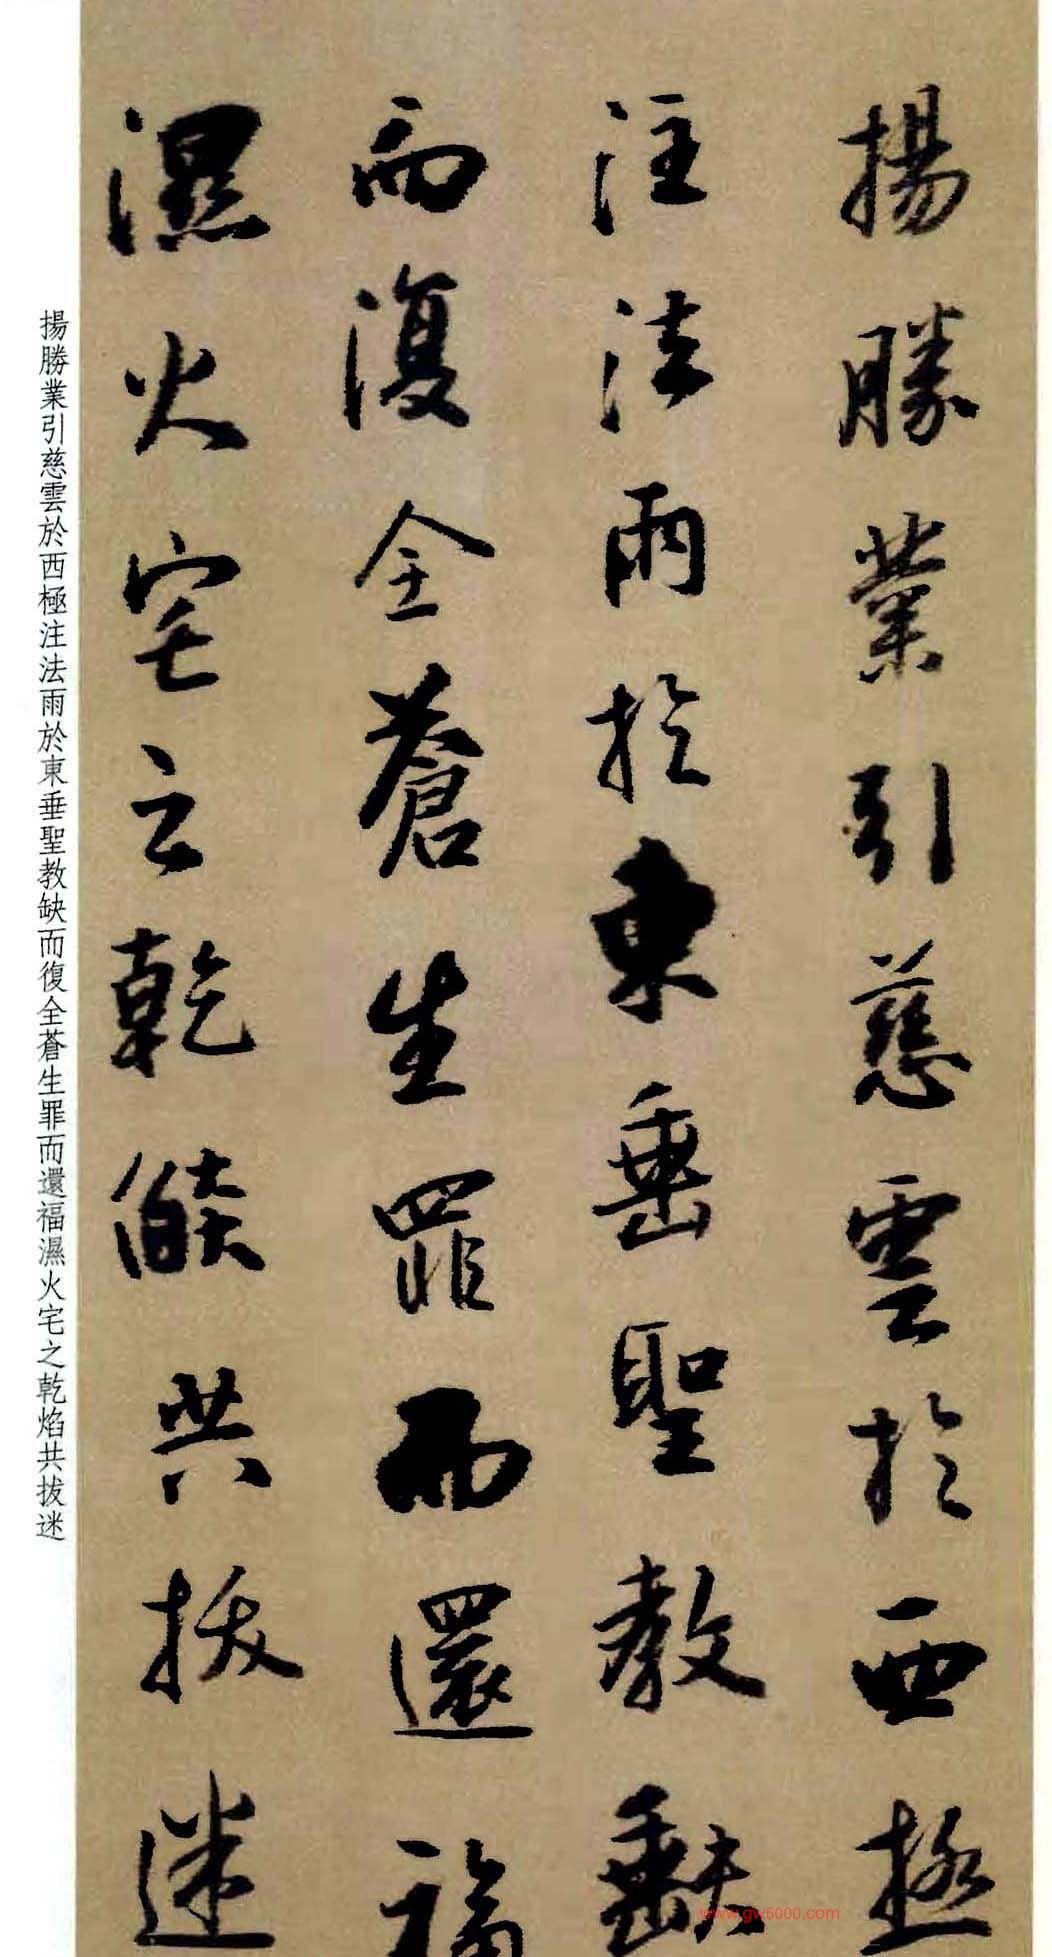 揚勝業引慈雲於西極
注法雨於東垂聖教缺
而復全蒼生罪而還福
濕火宅之乾焰共拔迷
揚勝業引慈雲於西極注法雨於東垂聖教缺而復全蒼生罪而還福濕火宅之乾焰共拔迷
www.gw5000.com